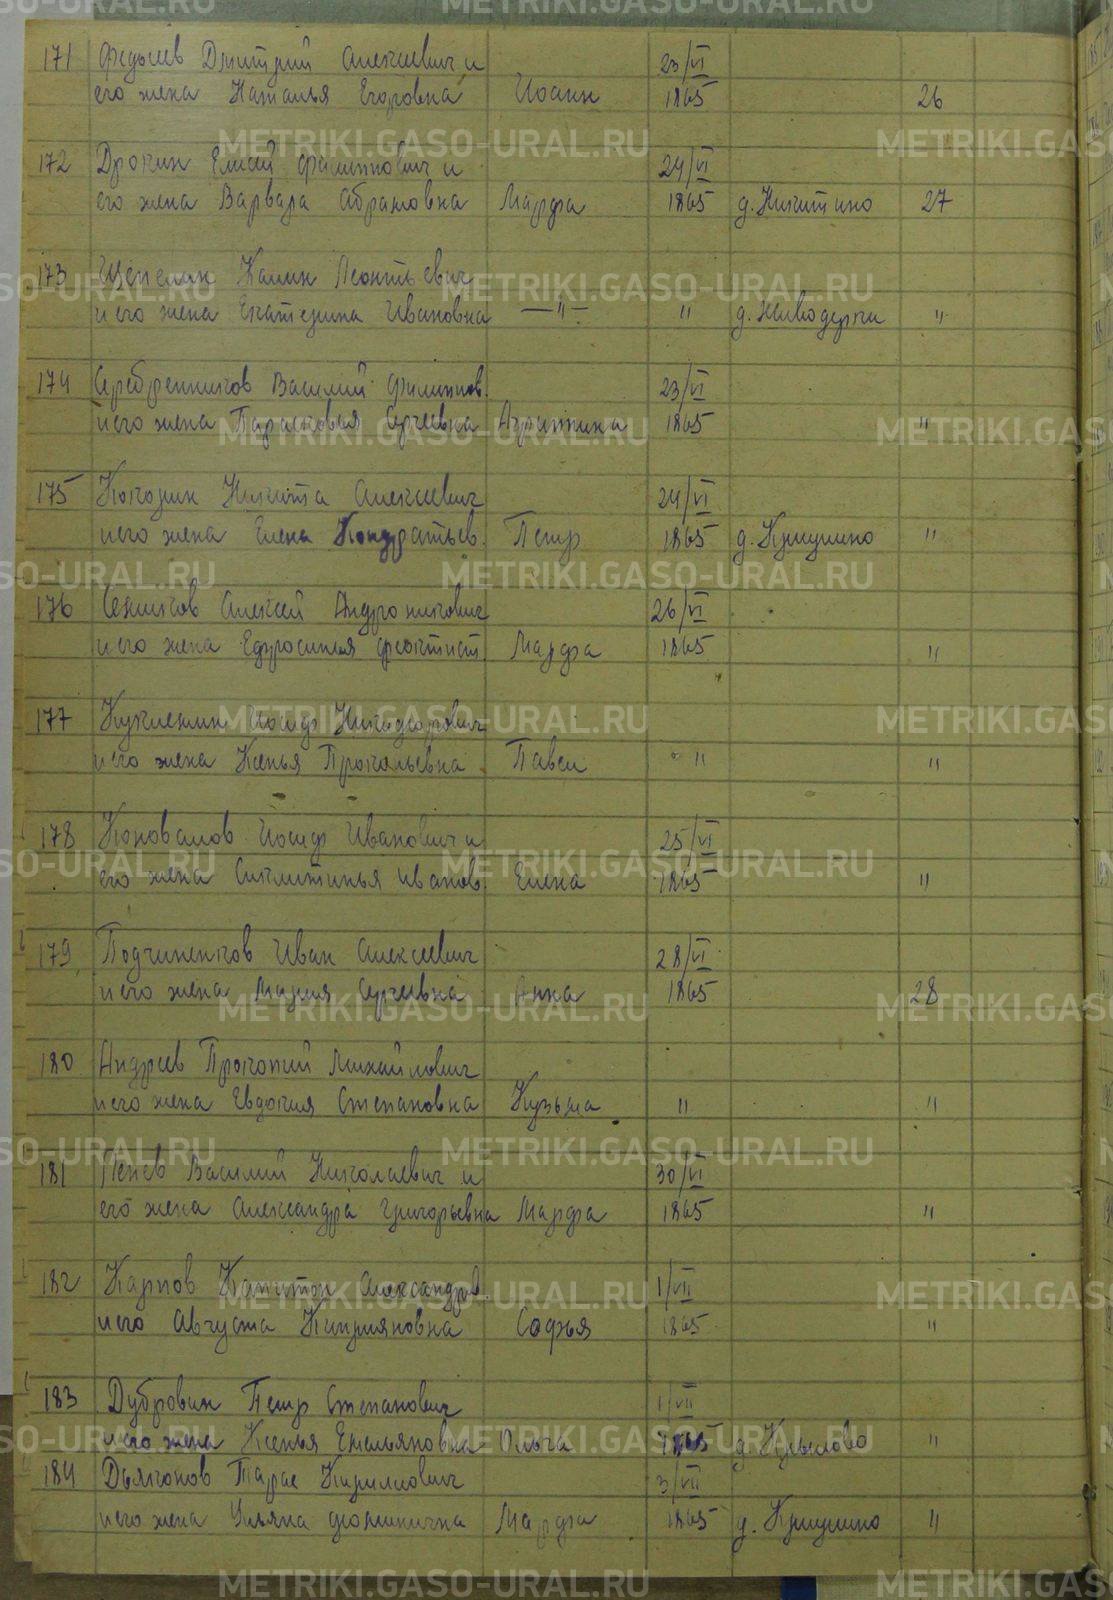 171 Федосеев Дмитрий Алексеевич и 23/VI
его жена Наталья Егоровна Иоанн 1865 26
172 Дрокин Елисей Филиппович и 24/VI
его жена Варвара Абрамовна Марфа 1865 д. Никитино 27
173 Щепелин Калин Леонтьевич
и его жена Екатерина Ивановна —"— " д. Живодерки "
174 Серебренников Василий Филиппов. 23/VI
и его жена Парасковья Сергеевна Агриппина 1865 "
175 Никита Алексеевич 24/VI
и его жена Елена Кондратьев. Петр 1865 д. "
176 Алексей Андроникович 26/VI
и его жена Ефросинья Феоктист. Марфа 1865 "
177 Иосиф Никифорович
и его жена Ксенья Прокопьевна Павел " "
178 Коновалов Иосиф Иванович и 25/VI
его жена Сиклитинья Иванов. Елена 1865 "
179 Подчиненков Иван Алексеевич 28/VI
и его жена Мария Сергеевна Анна 1865 28
180 Андреев Прокопий Михайлович
и его жена Евдокия Степановна Кузьма " "
181 Пенев Василий Николаевич и 30/VI
его жена Александра Григорьевна Марфа 1865 "
182 Карпов Капитон Александров. 1/VII
и его Августа Киприяновна Софья 1865 "
183 Дубровин Петр Степанович 1/VII
и его жена Ксенья Емельяновна Ольга 1865 д. Крылово "
184 Дьячков Тарас Кириллович 3/VII
и его жена Ульяна Фоминична Марфа 1865 д. "
METRIKI.GASO-URAL.RU